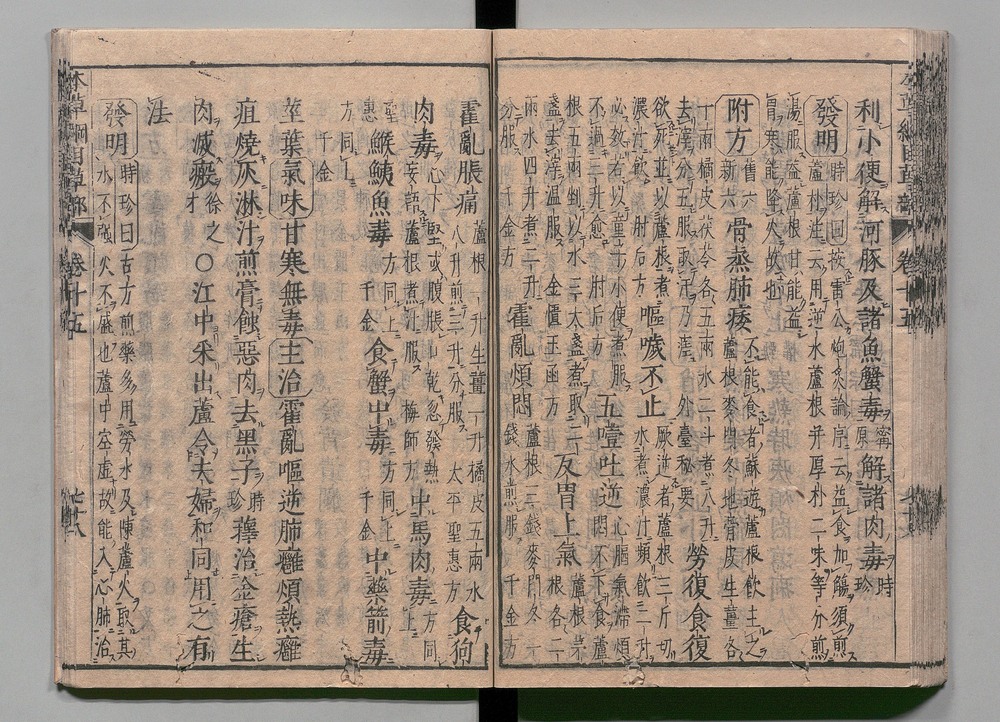 利小便解河豚及諸魚蟹毒甯原解諸肉毒時珍
發明時珍曰按雷公炮炙論序云益食加觴須煎
蘆朴注云用逆水蘆根并厚朴二味等分煎
湯服蘆根甘能益
胃寒能降火故也
附方舊六新六骨蒸肺痿不能食者蘇遊蘆根飲主之
蘆根麥門冬地骨皮生薑各
十兩橘皮茯苓各五兩水二斗煮八升
去滓分五服取汗乃瘥外臺秘要勞復食復
欲死並以蘆根煮濃汁飲肘后方嘔噦不止厥逆者蘆根三斤切
水煮濃汁頻飲二升
必效若以童子小便煮服
不過三升愈肘后方五噎吐逆心膈氣滯煩悶不下食蘆
根五兩剉以水三大盞煮取二
盞去滓溫服金匱玉函方反胃上氣蘆根茅根各二
兩水四升煮二升
分服千金方霍亂煩悶蘆根三錢麥門冬一
錢水煎服千金方
霍亂脹痛蘆根一升生薑一升橘皮五兩水
八升煎三升分服太平聖惠方食狗
肉毒心下堅或腹脹口乾忽發熱
妄語蘆根煮汁服梅師方中馬肉毒方同上
聖惠鯸鮧魚毒方同上千金食蟹中毒方同上千金中藥箭毒
方同上千金
莖葉氣味甘寒無毒主治霍亂嘔逆肺癰煩熱癰
疽燒灰淋汁煎膏蝕惡肉去黑子時珍籜治金瘡生
肉滅瘢徐之才〇江中采出蘆令夫婦和同用之有
法
發明時珍曰古方煎藥多用勞水及陳蘆火取其
水不強火不盛也蘆中空虛故能入心肺治
本草綱目草部
卷十五
七十八